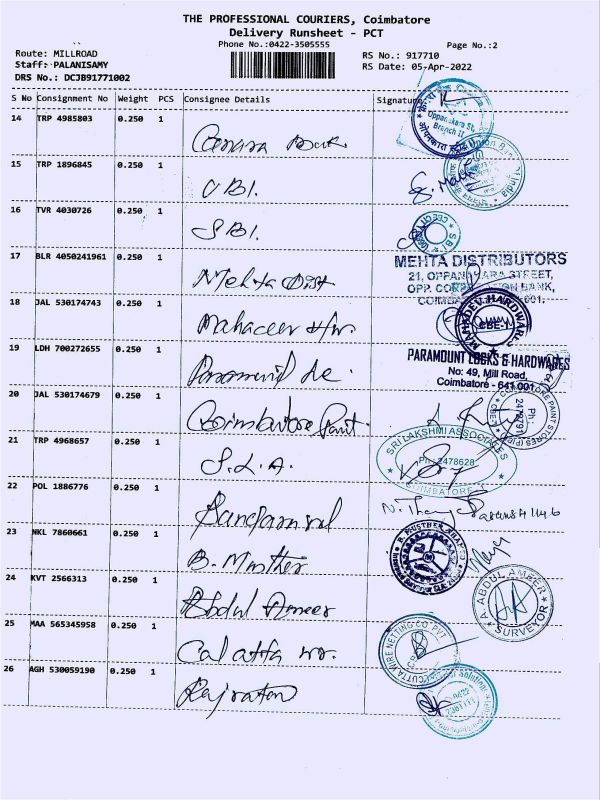 THE PROFESSIONAL COURIERS, Coimbatore
Delivery Runsheet - PCT
Phone No.:0422-3505555
Page No.:2
Route: MILLROAD
RS No.: 917710
Staff: PALANISAMY
RS Date: 05-Apr-2022
DRS No.: DCJB91771002
S No Consignment No Weight PCS Consignee Details Signature
14 TRP 4985803 0.250 1 Canara Bank
Oppanakara St,
Branch II
15 TRP 1896845 0.250 1 UBI.
Union Bank India
16 TVR 4030726 0.250 1 SBI.
17 BLR 4050241961 0.250 1 Mehta Dist
MEHTA DISTRIBUTORS
21, OPPANAKARA STREET,
OPP. CORPORATION BANK,
18 JAL 530174743 0.250 1 Mahaveer H/w.
HARDWARE
CBE-1
19 LDH 700272655 0.250 1
PARAMOUNT LOCKS & HARDWARES
No: 49, Mill Road,
Coimbatore - 641 001.
20 JAL 530174679 0.250 1 Coimbatore Paint.
PAINT STORES
21 TRP 4968657 0.250 1 S.L.A.
SRI LAKSHMI ASSOCIATES
Ph: 2478628
COIMBATORE
22 POL 1886776 0.250 1
23 NKL 7860661 0.250 1 B. Musther
24 KVT 2566313 0.250 1 Abdul Ameer
A. ABDUL AMEER
SURVEYOR
25 MAA 565345958 0.250 1 Calcutta wr.
CALCUTTA WIRE NETTING CO. PVT
26 AGH 530059190 0.250 1 Rajratan
Solution